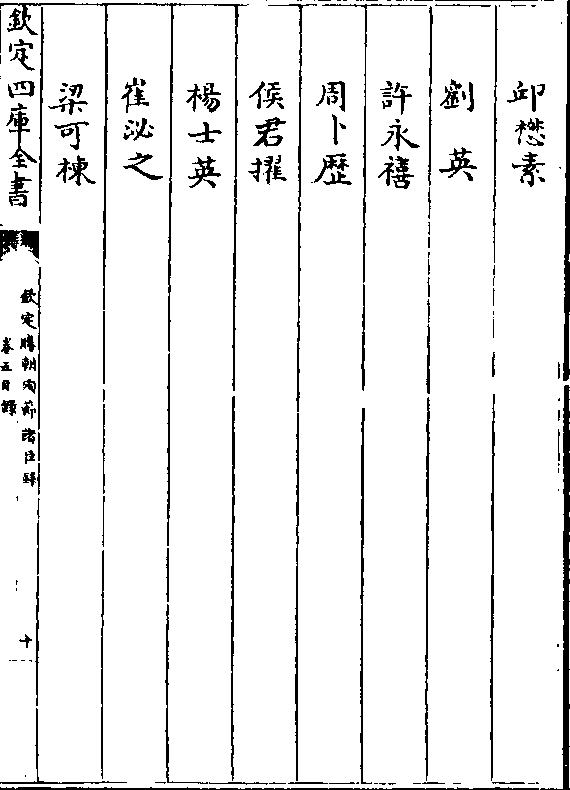 邱懋素
劉英
許永禧
周卜歷
侯君擢
楊士英
崔泌之
梁可棟
欽定四庫全書
欽定勝朝殉節諸臣録
卷五目録
十